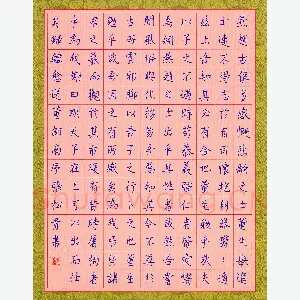 燕趙古稱多感慨悲歌之士董生舉進
士連不得志於有司懷抱利器鬱鬱適
茲土吾知其必有合也董生勉乎哉夫
以子之不遇時苟慕義彊仁者皆愛惜
焉矧燕趙之士出乎其性者哉然吾嘗
聞風俗與化移易吾惡知其今不異於
古所云邪聊以吾子之行卜之也董生
勉乎哉吾因子有所感矣爲我弔望諸
君之墓而觀於其市復有昔時屠狗者
乎爲我謝曰明天子在上可以出而仕
矣 韓愈送董邵南序 張松 書